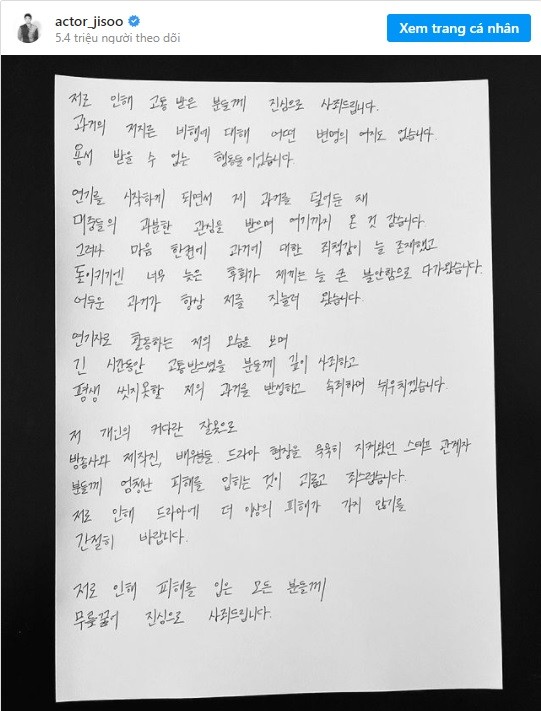 actor_jisoo
5.4 triệu người theo dõi
Xem trang cá nhân
저로 인해 고통 받은 분들께 진심으로 사죄드립니다.
과거의 저지른 비행에 대해 어떤 변명의 여지도 없습니다.
용서 받을 수 없는 행동들이었습니다.
연기를 시작하게 되면서 제 과거를 덮어둔 채
대중들의 과분한 관심을 받으며 여기까지 온 것 같습니다.
그러나 마음 한편에 과거에 대한 죄책감이 늘 존재했고
돌이키기엔 너무 늦은 후회가 저에게는 늘 큰 불안함으로 다가왔습니다.
어두운 과거가 항상 저를 짓눌러 왔습니다.
연기자로 활동하는 저의 모습을 보며
긴 시간동안 고통받으셨을 분들께 깊이 사죄하고
평생 씻지못할 저의 과거를 반성하고 속죄하며 뉘우치겠습니다.
저 개인의 커다란 잘못으로
방송사와 제작진, 배우분들, 드라마 현장을 묵묵히 지켜왔던 스태프 관계자
분들께 엄청난 피해를 입히는 것이 괴롭고 죄스럽습니다.
저로 인해 드라마에 더 이상의 피해가 가지 않기를
간절히 바랍니다.
저로 인해 피해를 입은 모든 분들께
무릎꿇어 진심으로 사죄드립니다.